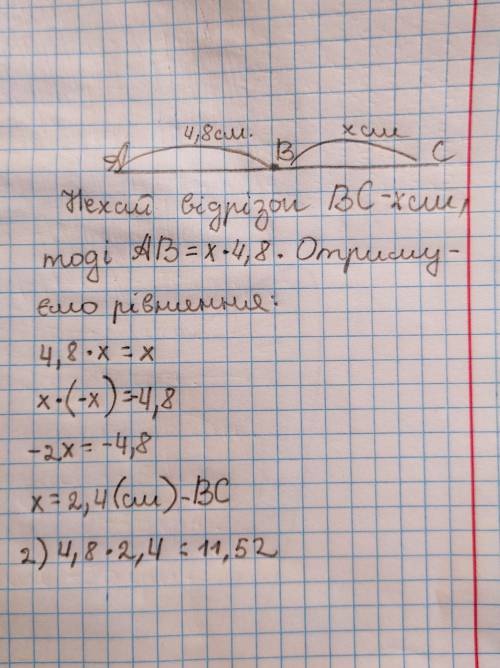 4,8см. xсм
A B C
Нехай відрізок BC - xсм,
тоді AB = x · 4,8. Отриму-
ємо рівняння:
4,8 · x = x
x · (-x) = -4,8
-2x = -4,8
x = 2,4 (см) - BC
2) 4,8 · 2,4 = 11,52